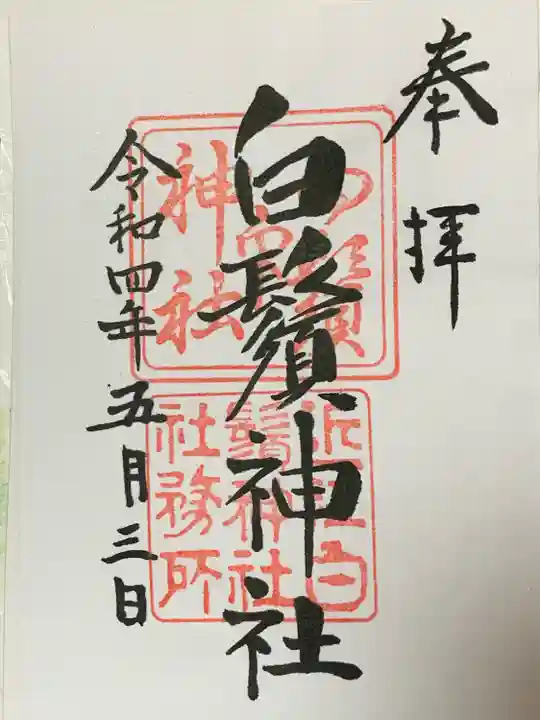 奉拝
白鬚神社
令和四年五月三日
神社
近江白
鬚神社
社務所